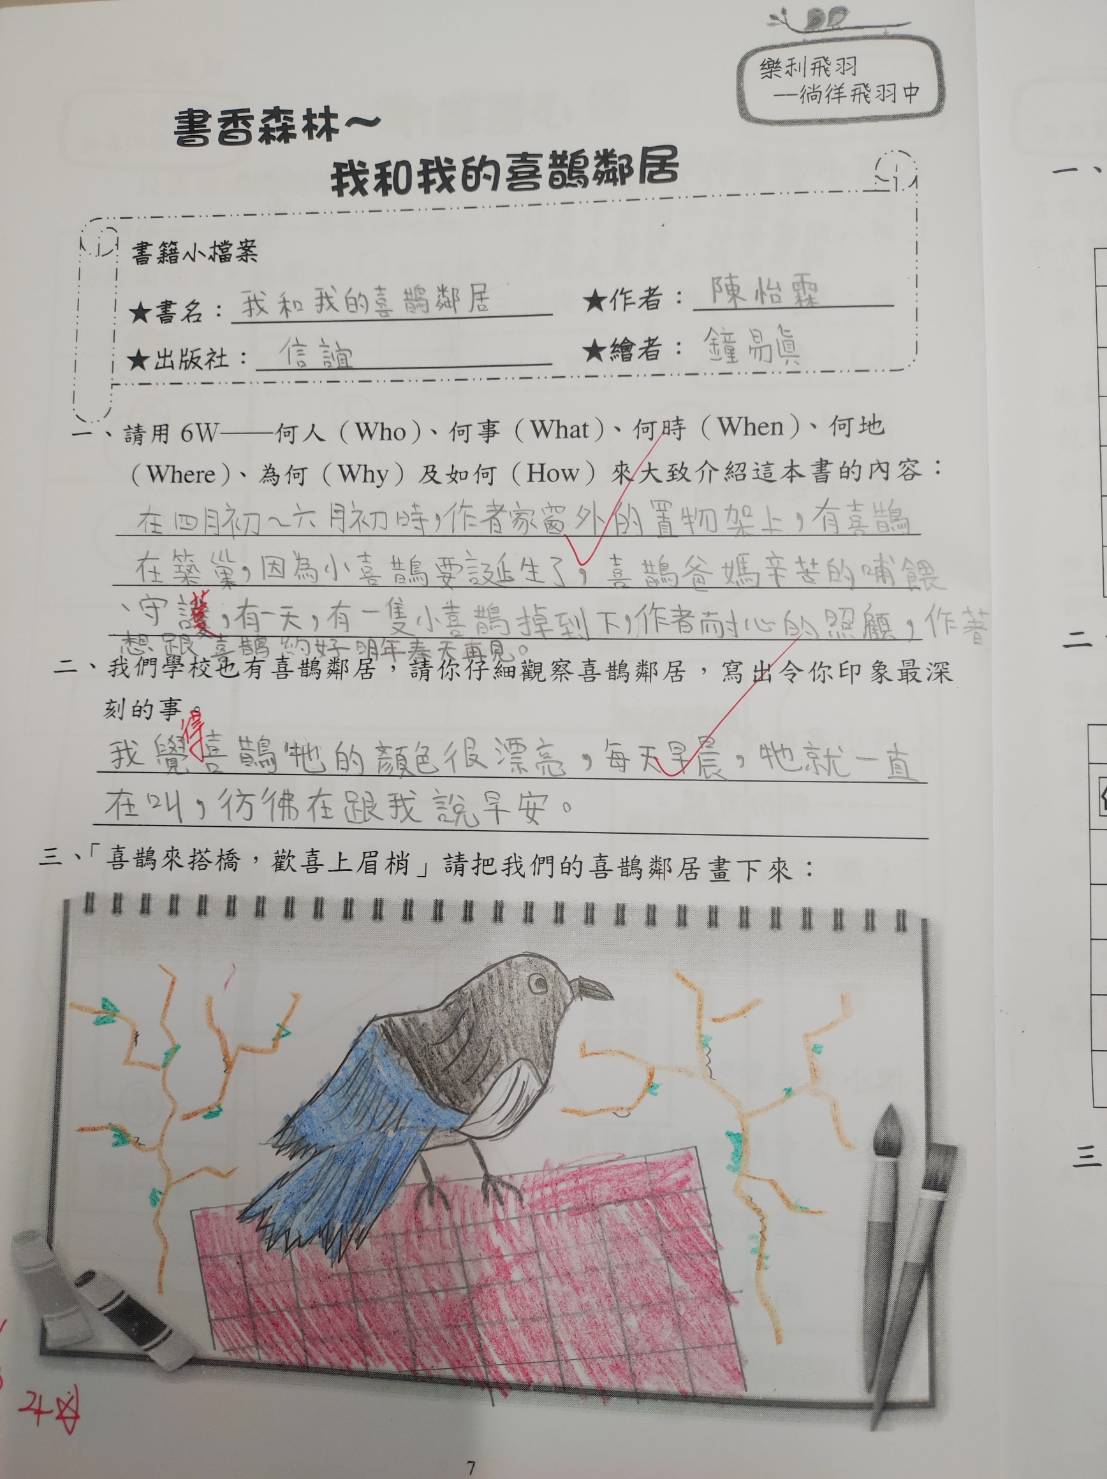 樂利飛羽
--徜徉飛羽中
書香森林～
我和我的喜鵲鄰居
書籍小檔案
★書名：我和我的喜鵲鄰居 ★作者：陳怡霖
★出版社：信誼 ★繪者：鐘易真
一、請用 6W——何人（Who）、何事（What）、何時（When）、何地
（Where）、為何（Why）及如何（How）來大致介紹這本書的內容：
在四月初～六月初時，作者家窗外的置物架上，有喜鵲
在築巢，因為小喜鵲要誕生了，喜鵲爸媽辛苦的哺餵
、守護，有一天，有一隻小喜鵲掉到下，作者耐心的照顧，作者
想跟喜鵲約好明年春天再見。
二、我們學校也有喜鵲鄰居，請你仔細觀察喜鵲鄰居，寫出令你印象最深
刻的事。
我覺得喜鵲牠的顏色很漂亮，每天早晨，牠就一直
在叫，彷彿在跟我說早安。
三、「喜鵲來搭橋，歡喜上眉梢」請把我們的喜鵲鄰居畫下來：
7
一、
二
三